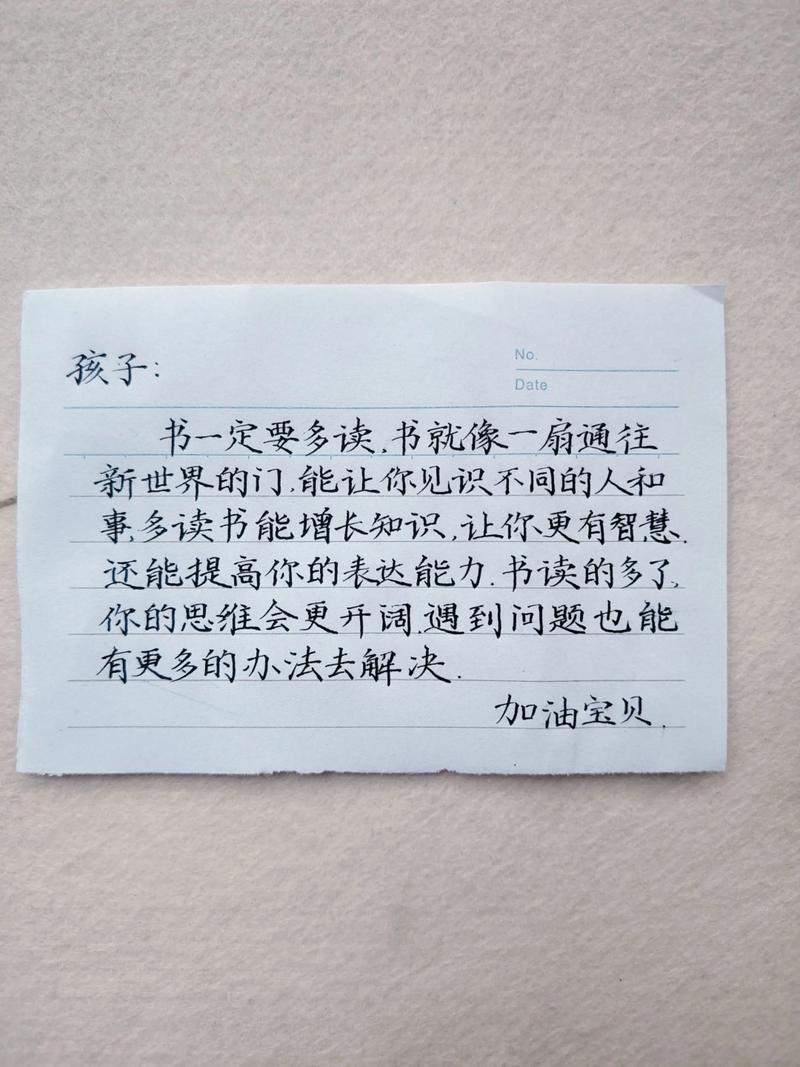 No.
孩子:
Date
书一定要多读,书就像一扇通往
新世界的门,能让你见识不同的人和
事,多读书能增长知识,让你更有智慧,
还能提高你的表达能力.书读的多了,
你的思维会更开阔,遇到问题也能
有更多的办法去解决.
加油宝贝.